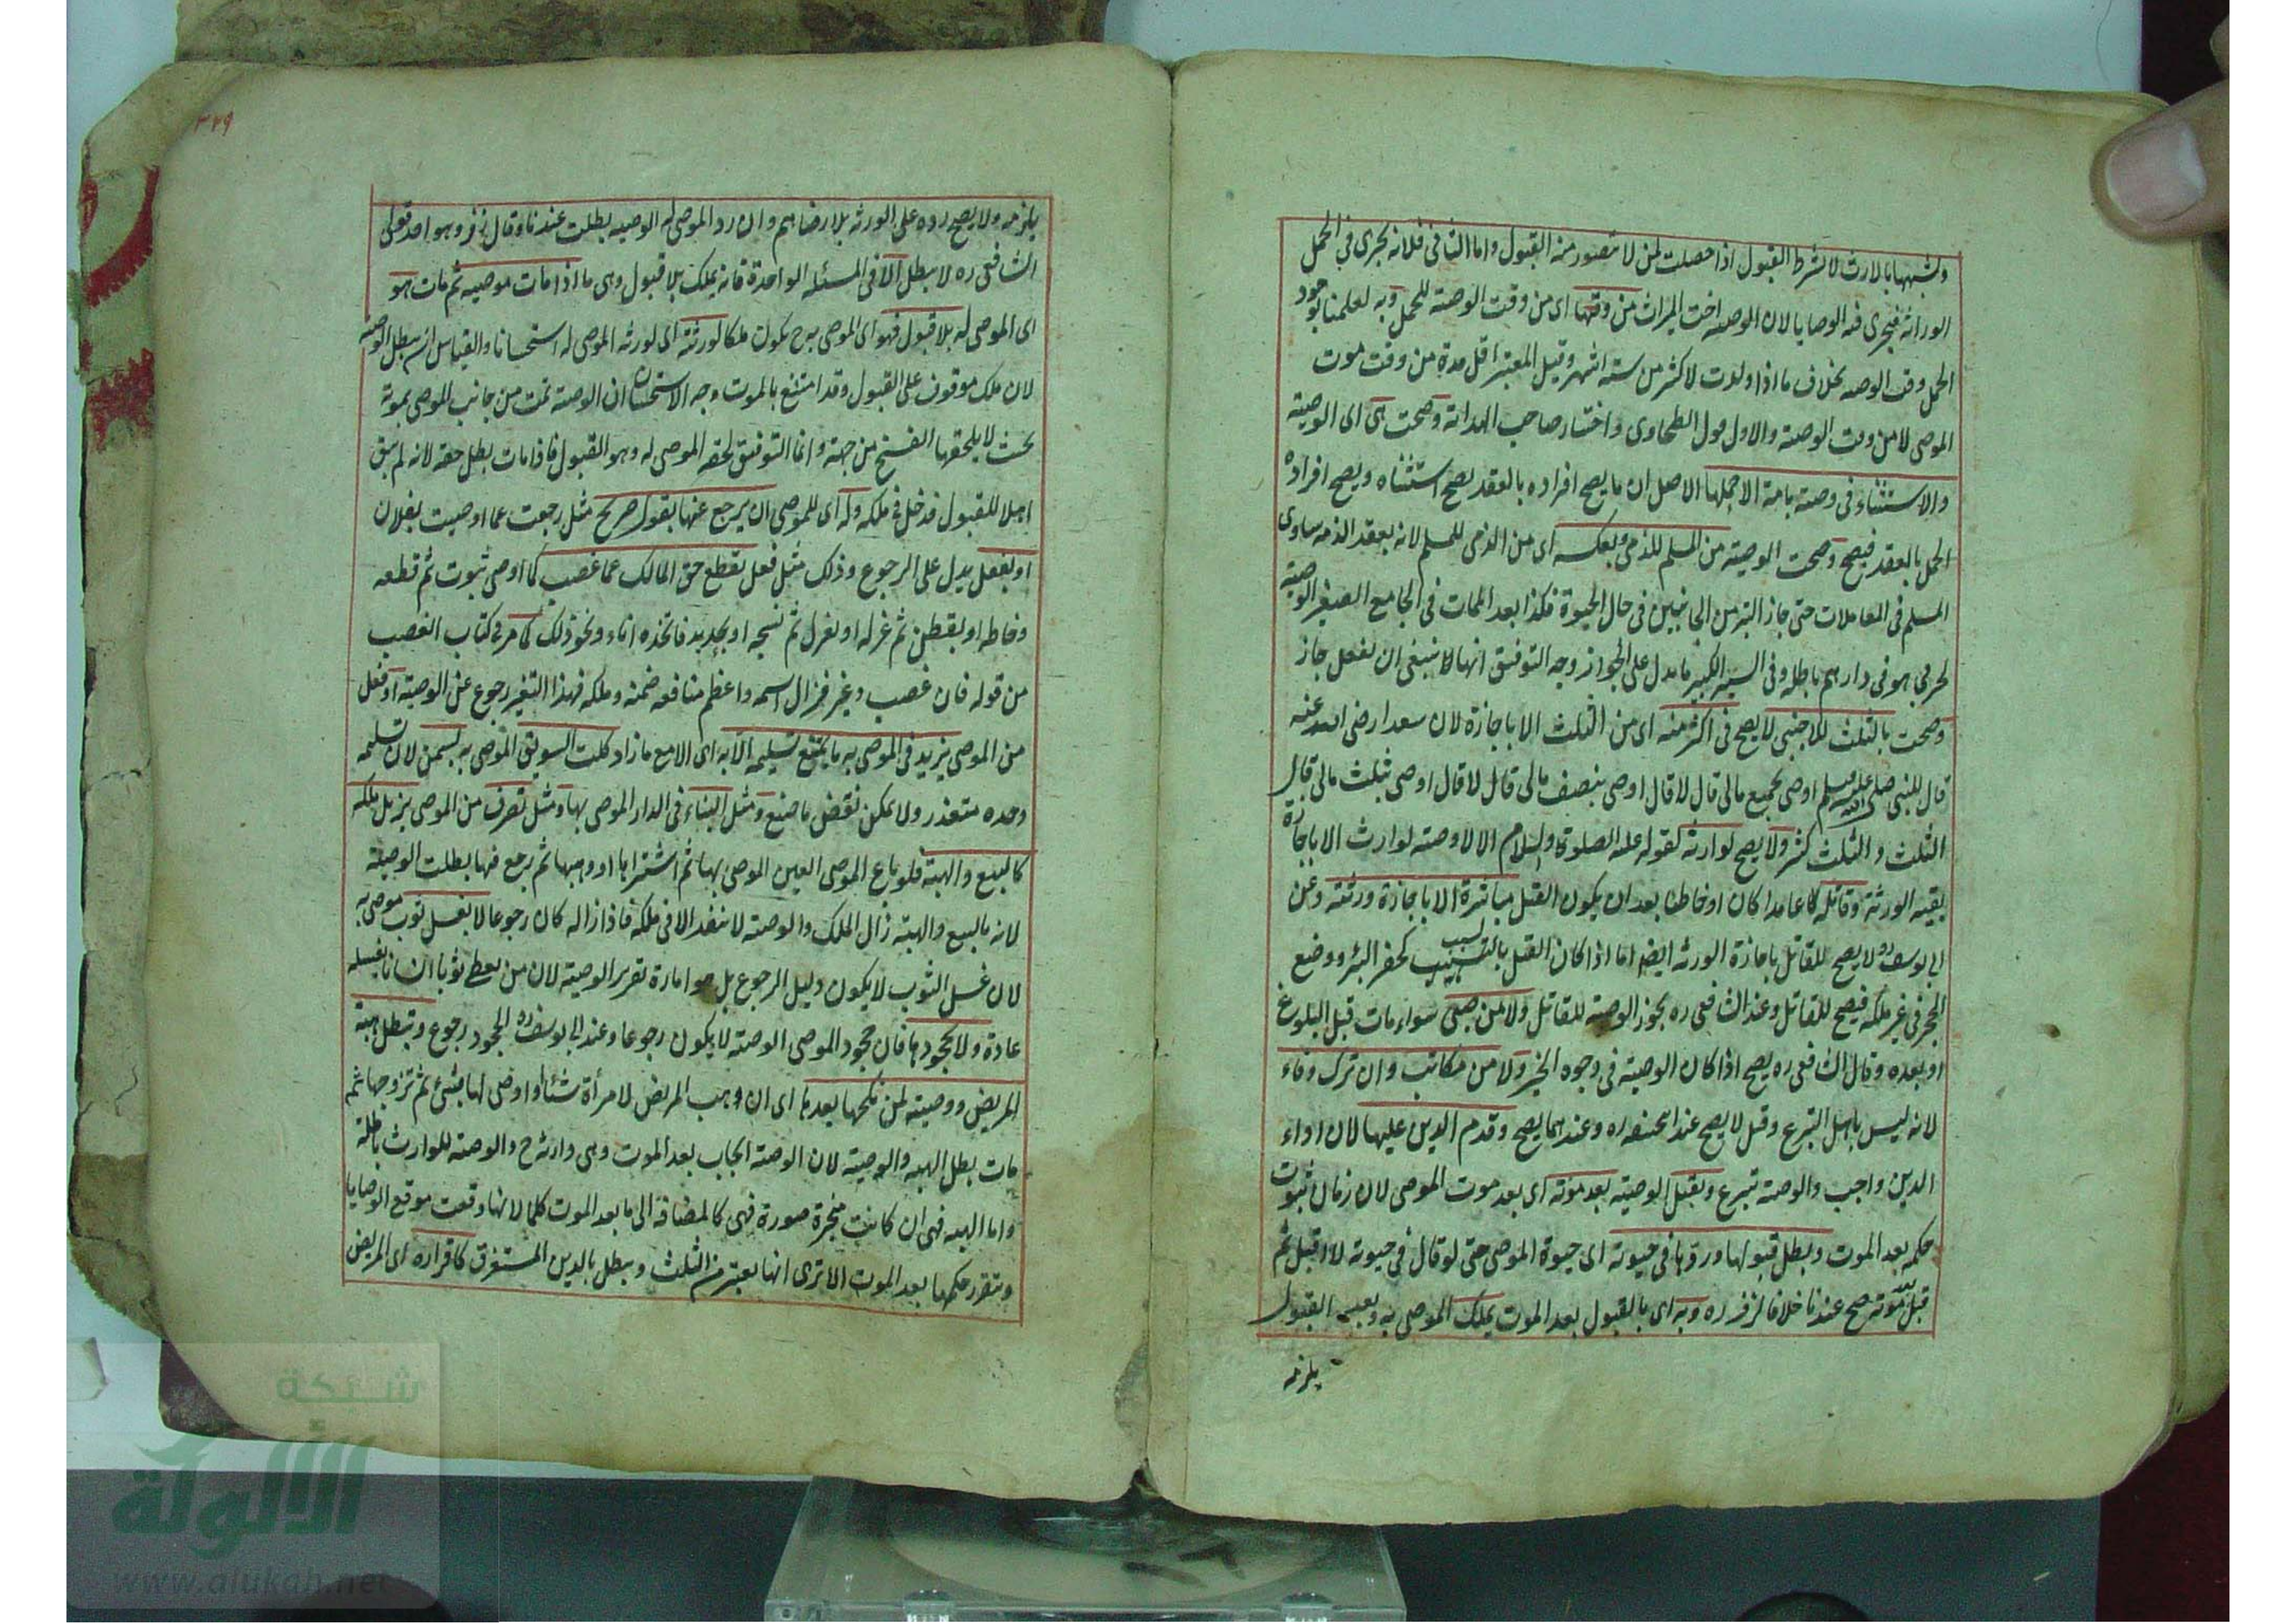 ولشبهها بالارث لا يشترط القبول اذا حصلت لمن لا يتصور منه القبول واما الثانى فلانه يجرى فى الحمل
الوراثة فيجرى فيه الوصايا لان الوصية اخت الميراث من وقتها اى من وقت الوصية للحمل وبه لعلمنا بوجود
الحمل وقت الوصية بخلاف ما اذا ولدت لاكثر من ستة اشهر وقيل المعتبر اقل مدة من وقت موت
الموصى لا من وقت الوصية والاول قول الطحاوى واختار صاحب الهداية وصحت هى اى الوصية
والاستثناء فى وصيته بامة الا حملها الاصل ان ما يصح افراده بالعقد يصح استثناه ويصح افراده
الحمل بالعقد فيصح وصحت الوصية من المسلم للذمى وبعكسه اى من الذمى للمسلم لانه بعقد الذمه ساوى
المسلم فى المعاملات حتى جاز التبرع من الجانبين فى حال الحيوة فكذا بعد الممات فى الجامع الصغير الوصية
لحربى هو فى دارهم باطلة وفى السير الكبير ما يدل على الجواز وجه التوفيق انها لا ينبغى ان يفعل جاز
وصحت بالثلث للاجنبى لا يصح فى اكثر منه اى من الثلث الا باجازة لان سعدا رضى الله عنه
قال للنبى صلى الله عليه وسلم اوصى بجميع مالى قال لا قال اوصى بنصف مالى قال لا قال اوصى بثلث مالى قال
الثلث والثلث كثير ولا يصح لوارثه لقوله عليه الصلوة والسلام الا لا وصية لوارث الا باجازة
بقية الورثة وقاتله عامدا كان او خاطئا بعد ان يكون القتل مباشرة الا باجازة ورثته وعن
ابى يوسف ره لا يصح للقاتل باجازة الورثة ايضا اما اذا كان القتل بالتسبيب كحفر البئر ووضع
الحجر فى غير ملكه فيصح للقاتل وعند الشافعى ره يجوز الوصية للقاتل ولا من صبى سواء مات قبل البلوغ
او بعده وقال الشافعى ره يصح اذا كان الوصية فى وجوه الخير ولا من مكاتب وان ترك وفاء
لانه ليس باهل التبرع وقيل لا يصح عند ابى حنيفه ره وعندهما يصح وقدم الدين عليها لان اداء
الدين واجب والوصية تبرع ويقبل الوصية بعد موته اى بعد موت الموصى لان زمان ثبوت
حكمه بعد الموت وبطل قبولها وردها فى حيوته اى حيوة الموصى حتى لو قال فى حيوته لا اقبل ثم
قبل بعد موته صح عندنا خلافا لزفر ره وبه اى بالقبول بعد الموت يملك الموصى به وبعد القبول
يلزمه
٣٢٩
يلزمه ولا يصح رده على الورثة بلا رضاهم وان رد الموصى له الوصيه بطلت عندنا وقال زفر وهو احد قولى
الشافعى ره لا يبطل الا فى المسئله الواحدة فانه يملك بلا قبول وهى ما اذا مات موصيه ثم مات هو
اى الموصى له بلا قبول فهو اى الموصى به ح يكون ملكا لورثته اى لورثة الموصى له استحسانا والقياس ان يبطل الوصية
لان ملكه موقوف على القبول وقد امتنع بالموت وجه الاستحسان ان الوصية تمت من جانب الموصى بموته
بحيث لا يلحقها الفسخ من جهته وانما التوقف لحقه الموصى له وهو القبول فاذا مات بطل حقه لانه لم يبق
اهلا للقبول فدخل فى ملكه وله اى للموصى ان يرجع عنها بقول صريح مثل رجعت عما اوصيت بفلان
او بفعل يدل على الرجوع وذلك مثل فعل يقطع حق المالك عما غصب كما اوصى بثوب ثم قطعه
وخاطه او بقطن ثم غزله او بغزل ثم نسجه او بحديد فاتخذه اناء ونحو ذلك كما مر فى كتاب الغصب
من قوله فان غصب وغير فزال اسمه واعظم منافعه ضمنه وملكه فهذا التغير رجوع عن الوصية او فعل
من الموصى يزيد فى الموصى به ما يمتنع تسليمه الا به اى الا مع ما زاد كلت السويق الموصى به بسمن لان تسليمه
وحده متعذر ولا يمكن نقض ما صنع ومثل البناء فى الدار الموصى بها ومثل تصرف من الموصى يزيل ملكه
كالبيع والهبة فلو باع الموصى العين الموصى بها ثم اشتراها او وهبها ثم رجع فيها بطلت الوصية
لانه بالبيع والهبة زال الملك والوصية لا ينفذ الا فى ملكه فاذا زاله كان رجوعا لا بغسل ثوب موصى به
لان غسل الثوب لا يكون دليل الرجوع بل هو امارة تقرير الوصية لان من يعطى ثوبا انسانا يغسله
عادة ولا بجحودها فان جحود الموصى الوصية لا يكون رجوعا وعند ابى يوسف ره الجحود رجوع وتبطل هبة
المريض ووصيته لمن نكحها بعدها اى ان وهب المريض لامرأة شيئا او اوصى لها بشئ ثم تزوجها ثم
مات بطل الهبه والوصية لان الوصية ايجاب بعد الموت وهى وارثه ح والوصية للوارث باطلة
واما الهبه فهى ان كانت منجزة صورة فهى كالمضافة الى ما بعد الموت حكما لانها وقعت موقع الوصايا
ويتقرر حكمها بعد الموت الا ترى انها يعتبر من الثلث ويبطل بالدين المستغرق كاقراره اى المريض
شبكة
الألوكة
www.alukah.net